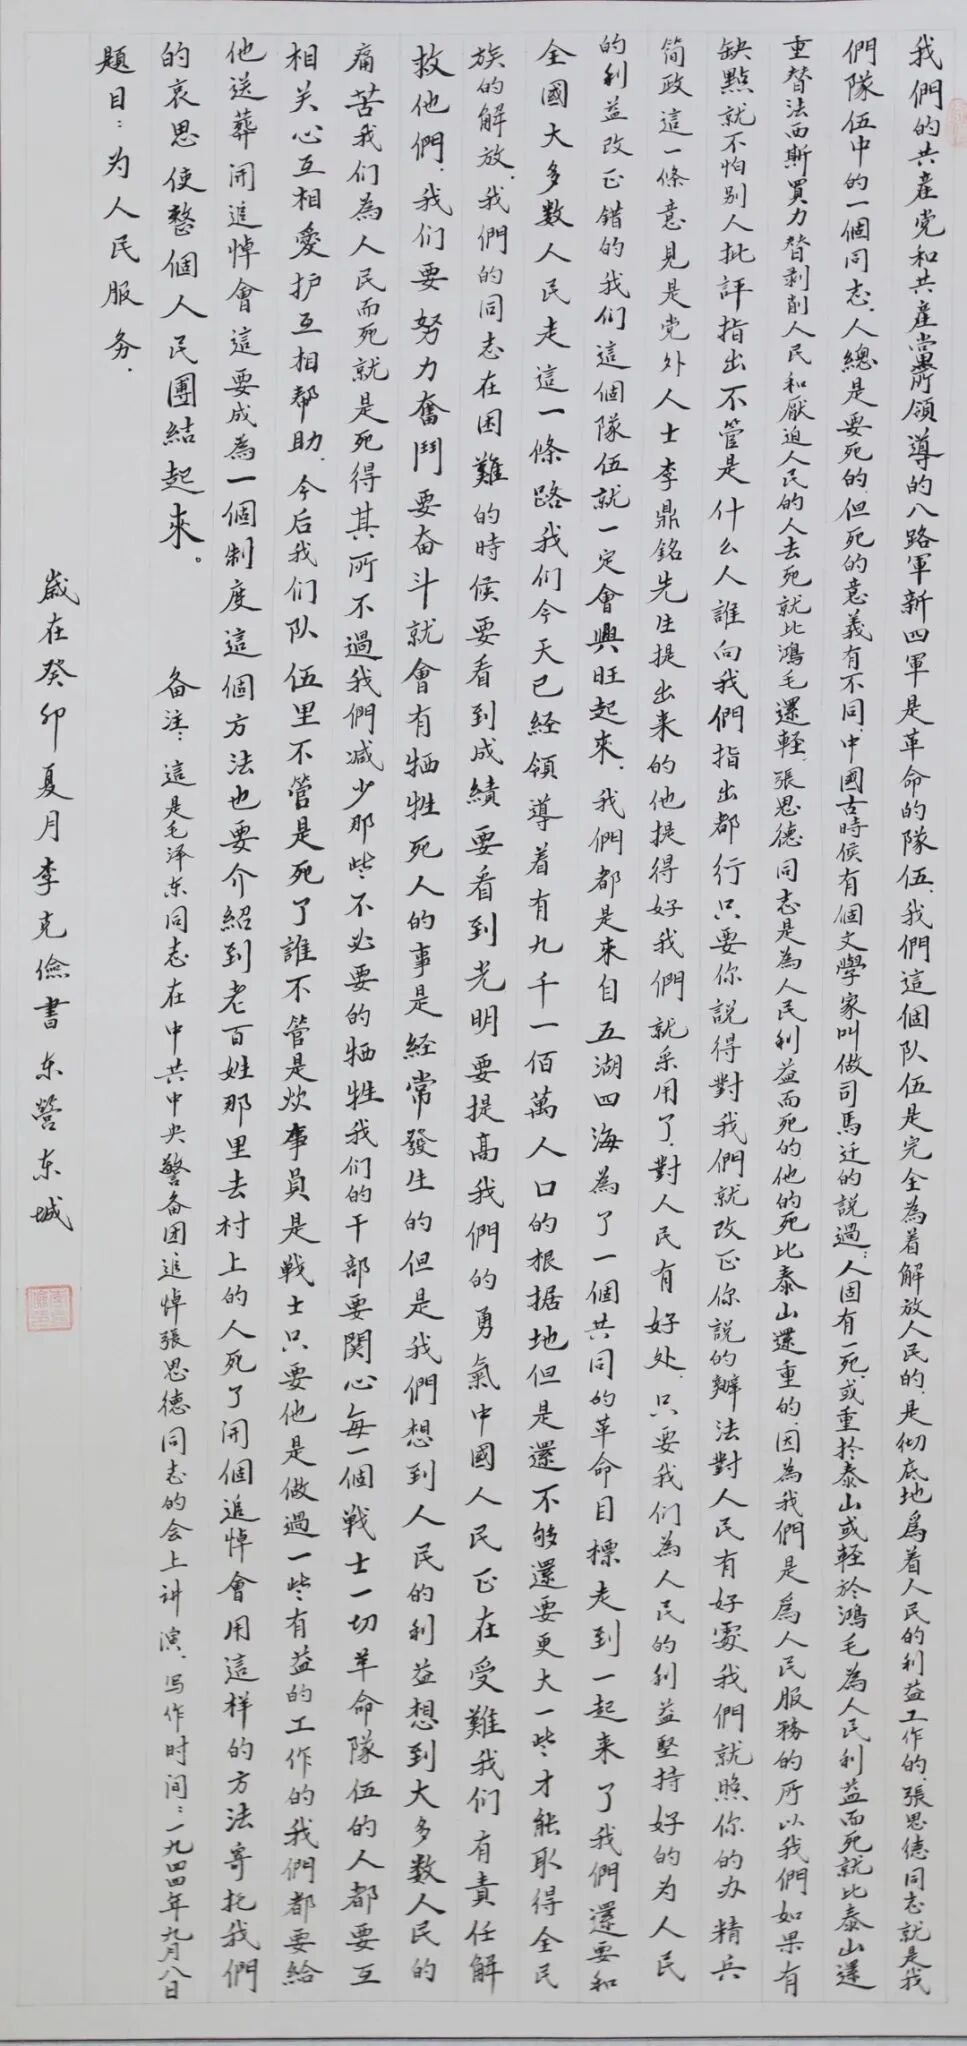 我們的共產党和共產黨所領導的八路軍新四軍是革命的隊伍.我們這個队伍是完全為着解放人民的.是彻底地為着人民的利益工作的.張思德同志就是我
們隊伍中的一個同志.人總是要死的.但死的意義有不同.中國古時候有個文學家叫做司馬迁的説過:人固有一死.或重扵泰山或輕於鴻毛為人民利益而死就比泰山還
重替法西斯買力替剥削人民和厭迫人民的人去死就比鴻毛還輕.張思德同志是為人民利益而死的.他的死比泰山還重的.因為我們是為人民服務的所以我們如果有
缺點就不怕别人批評指出不管是什么人誰向我們指出都行只要你説得對我們就改正你説的辦法對人民有好處我們就照你的办精兵
简政這一條意見是党外人士李鼎銘先生提出来的他提得好我們就采用了.對人民有好处.只要我们為人民的利益堅持好的为人民
的利益改正錯的我们這個隊伍就一定會興旺起來.我們都是來自五湖四海為了一個共同的革命目標走到一起来了我們還要和
全國大多数人民走這一條路我们今天已经領導着有九千一佰萬人口的根据地但是還不够還要更大一些才能取得全民
族的解放.我們的同志在困難的時候要看到成績要看到光明要提高我們的勇氣中國人民正在受難我们有責任解
救他們.我们要努力奮鬥要奋斗就會有牺牲死人的事是经常發生的但是我們想到人民的利益想到大多数人民的
痛苦我们為人民而死就是死得其所不過我們减少那些不必要的牺牲我们的干部要関心每一個戦士一切革命隊伍的人都要互
相关心互相愛护互相帮助.今后我们队伍里不管是死了誰不管是炊事員是戦士只要他是做過一些有益的工作的我們都要給
他送葬開追悼會這要成為一個制度這個方法也要介紹到老百姓那里去村上的人死了開個追悼會用這样的方法寄托我們
的哀思使整個人民團結起來。
備注:這是毛泽东同志在中共中央警备团追悼張思德同志的会上讲演.写作时间:一九四四年九月八日
題目:为人民服务.
歲在癸卯夏月李克儉書东營东城